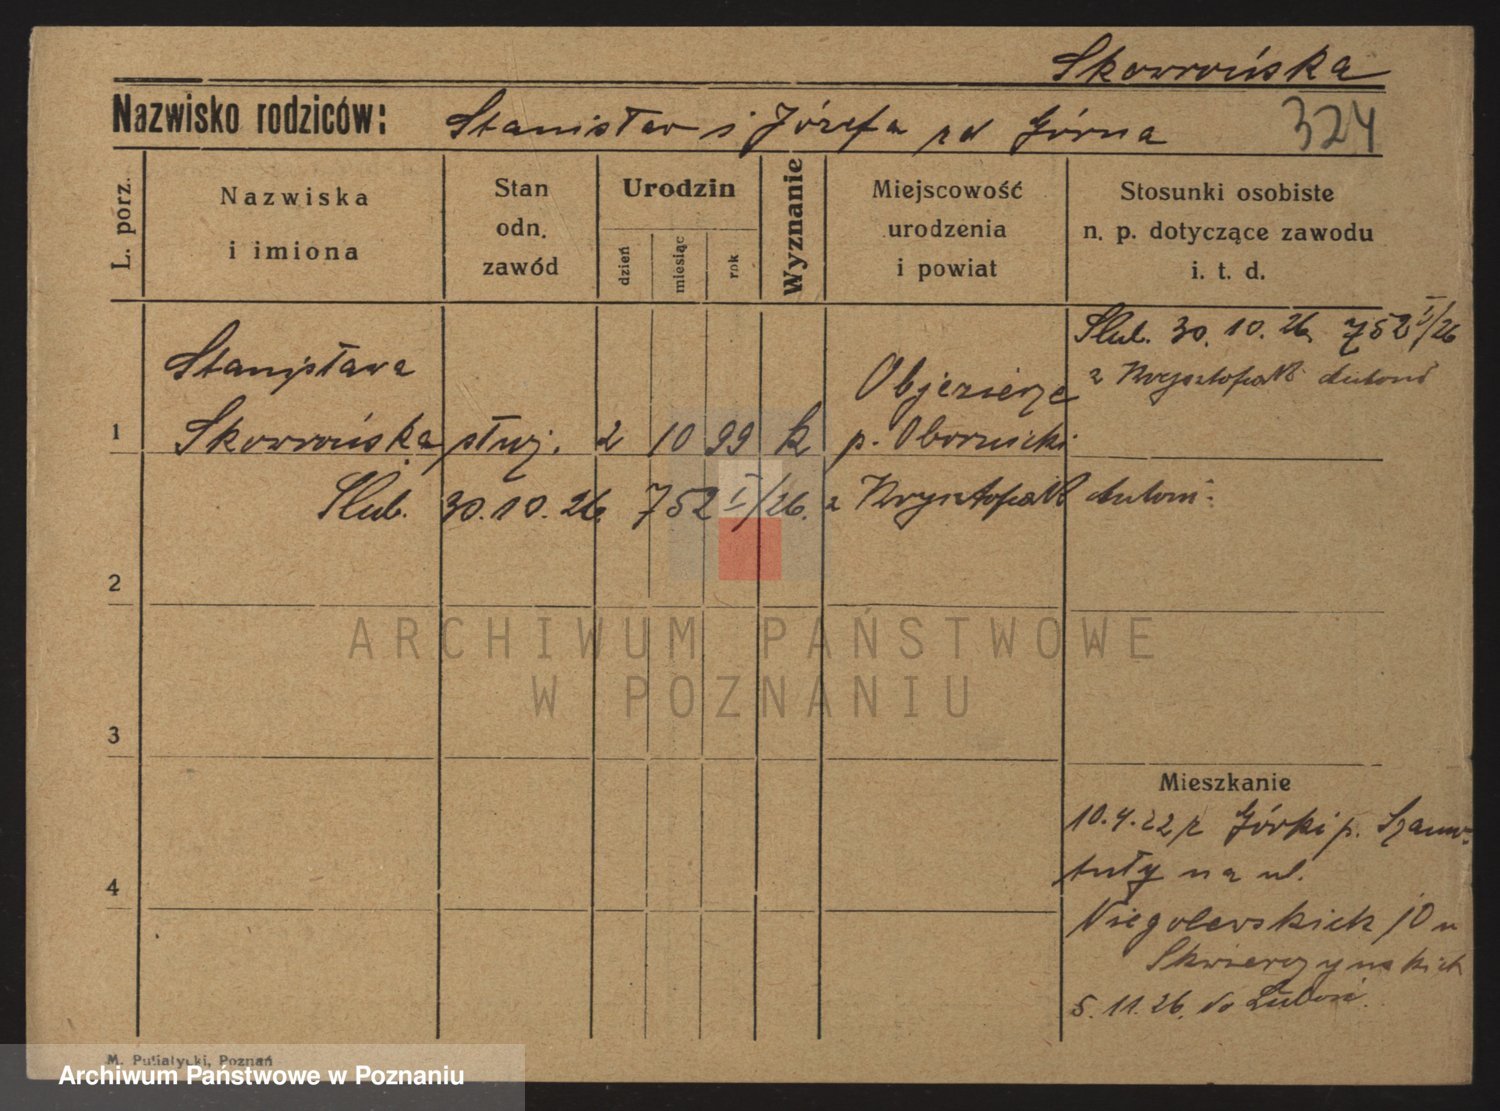 Skowrońska
Nazwisko rodziców: Stanisław i Józefa zd Górna 324
L. porz.
Nazwiska
i imiona
Stan
odn.
zawód
Urodzin
dzień
miesiąc
rok
Wyznanie
Miejscowość
urodzenia
i powiat
Stosunki osobiste
n. p. dotyczące zawodu
i. t. d.
Ślub. 30.10.26. 752 I/26
z Krysztofiak Antoni
Stanisława
Objezierze
1 Skowrońska służ. 2 10 99 k p. Obornicki
Ślub. 30.10.26. 752 I/26. z Krysztofiak Antoni
2
3
4
Mieszkanie
10.4.22 z Górki p. Szamo-
tuły na ul.
Niegolewskich 10 u
Skwierczyńskich
5.11.26. do Luboń.
M. Putiatycki, Poznań
ARCHIWUM PAŃSTWOWE
W POZNANIU
Archiwum Państwowe w Poznaniu